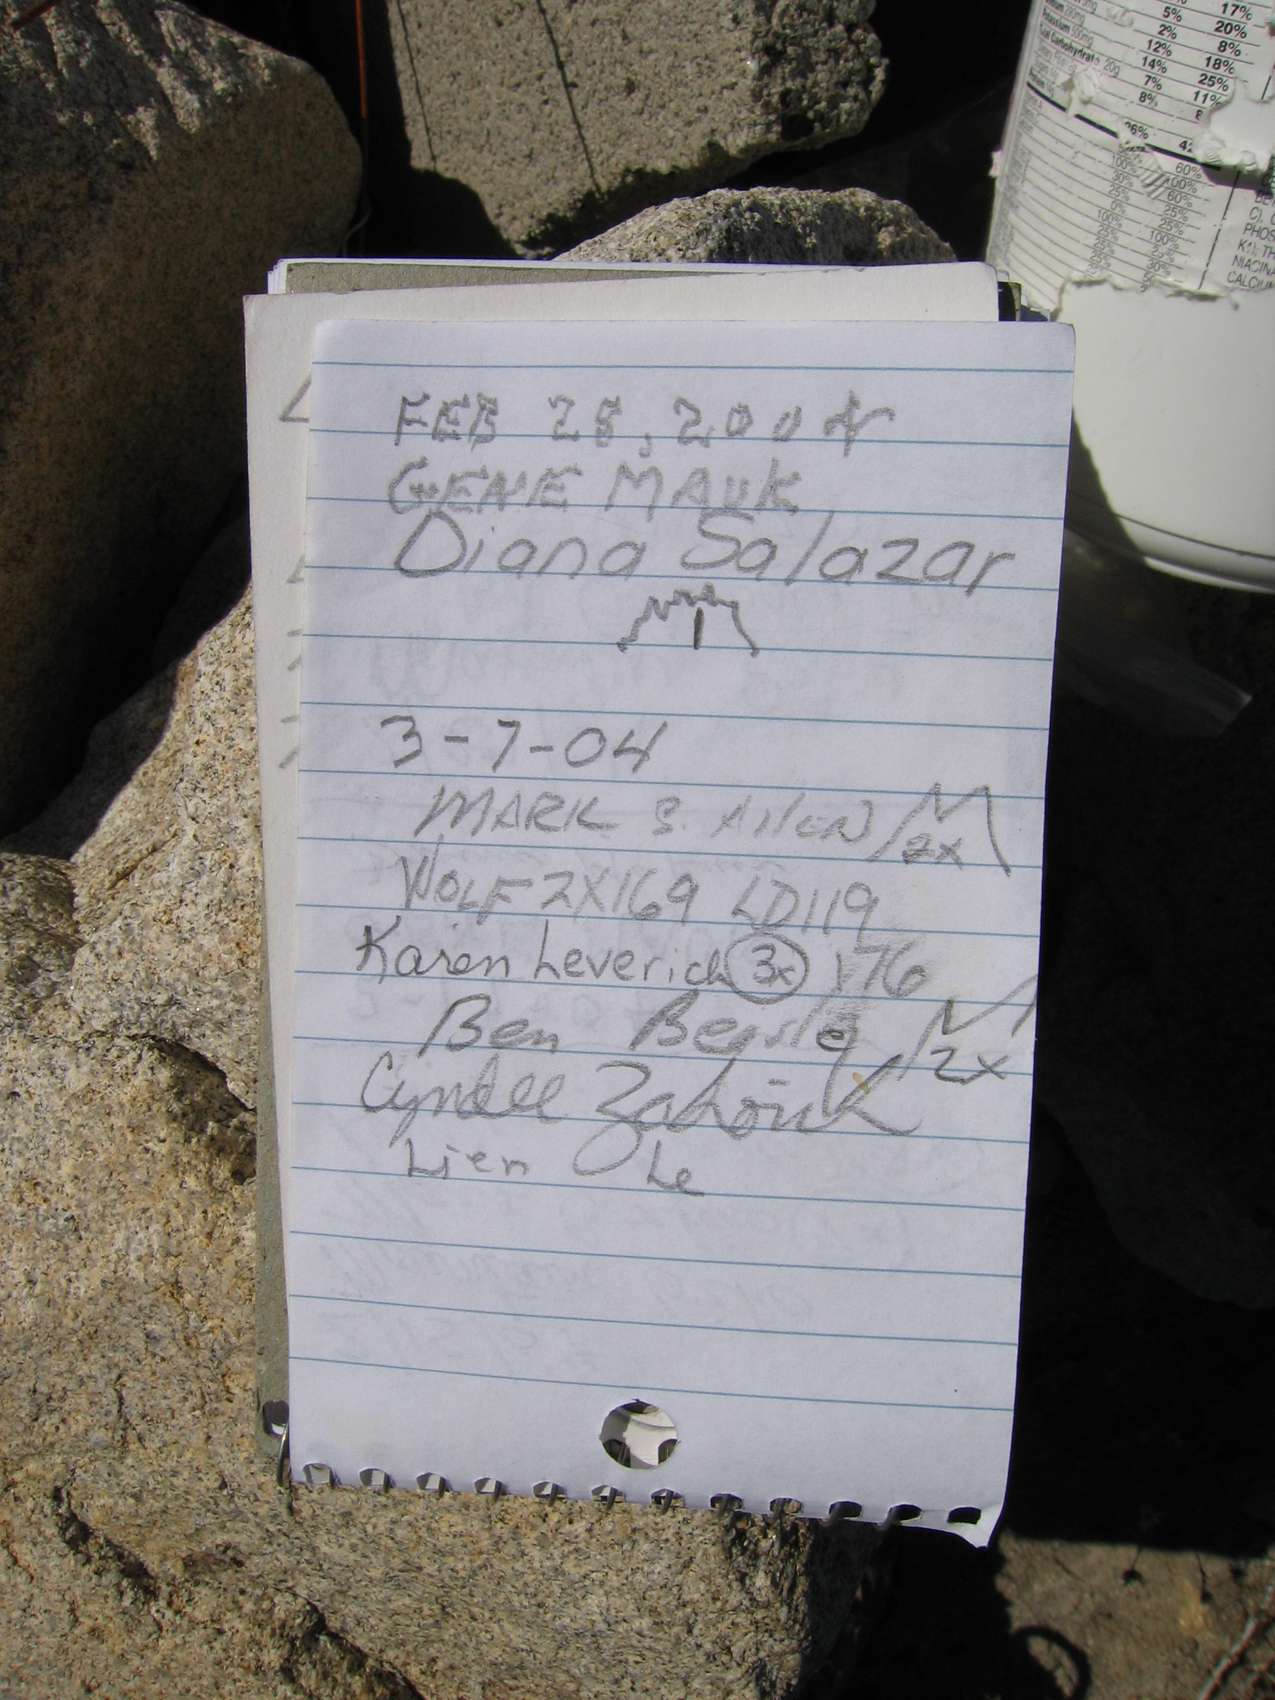 FEB 28, 2004
GENE MAUK
Diana Salazar
1
3-7-04
MARK S. Allen 2x
WOLF 2X169 LD119
Karen Leverich 3x 176
Ben 2x
Cyndee Zahorik
Lien Le
17%
5% 20%
2% 8%
12% 18%
14% 25%
7% 11%
8%
60%
100%
60%
25%
NIACINA
CALCIUM